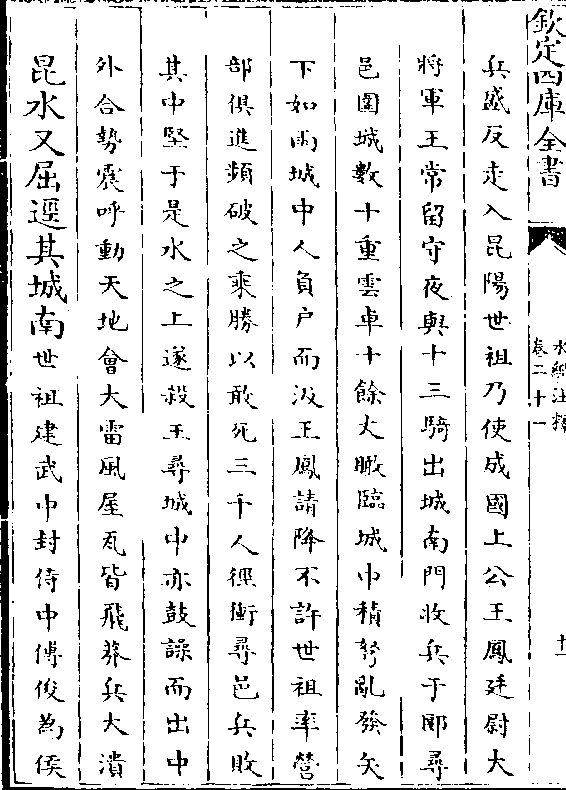 欽定四庫全書
水經注釋
卷二十一
十一
兵盛反走入昆陽世祖乃使成國上公王鳳廷尉大
將軍王常留守夜與十三騎出城南門收兵于郾尋
邑圍城數十重雲車十餘丈瞰臨城中積弩亂發矢
下如雨城中人負户而汲王鳳請降不許世祖率營
部俱進頻破之乘勝以敢死三千人徑衝尋邑兵敗
其中堅于是水之上遂殺王尋城中亦鼓譟而出中
外合勢震呼動天地會大雷風屋瓦皆飛莽兵大潰
昆水又屈逕其城南世祖建武中封侍中傅俊為侯